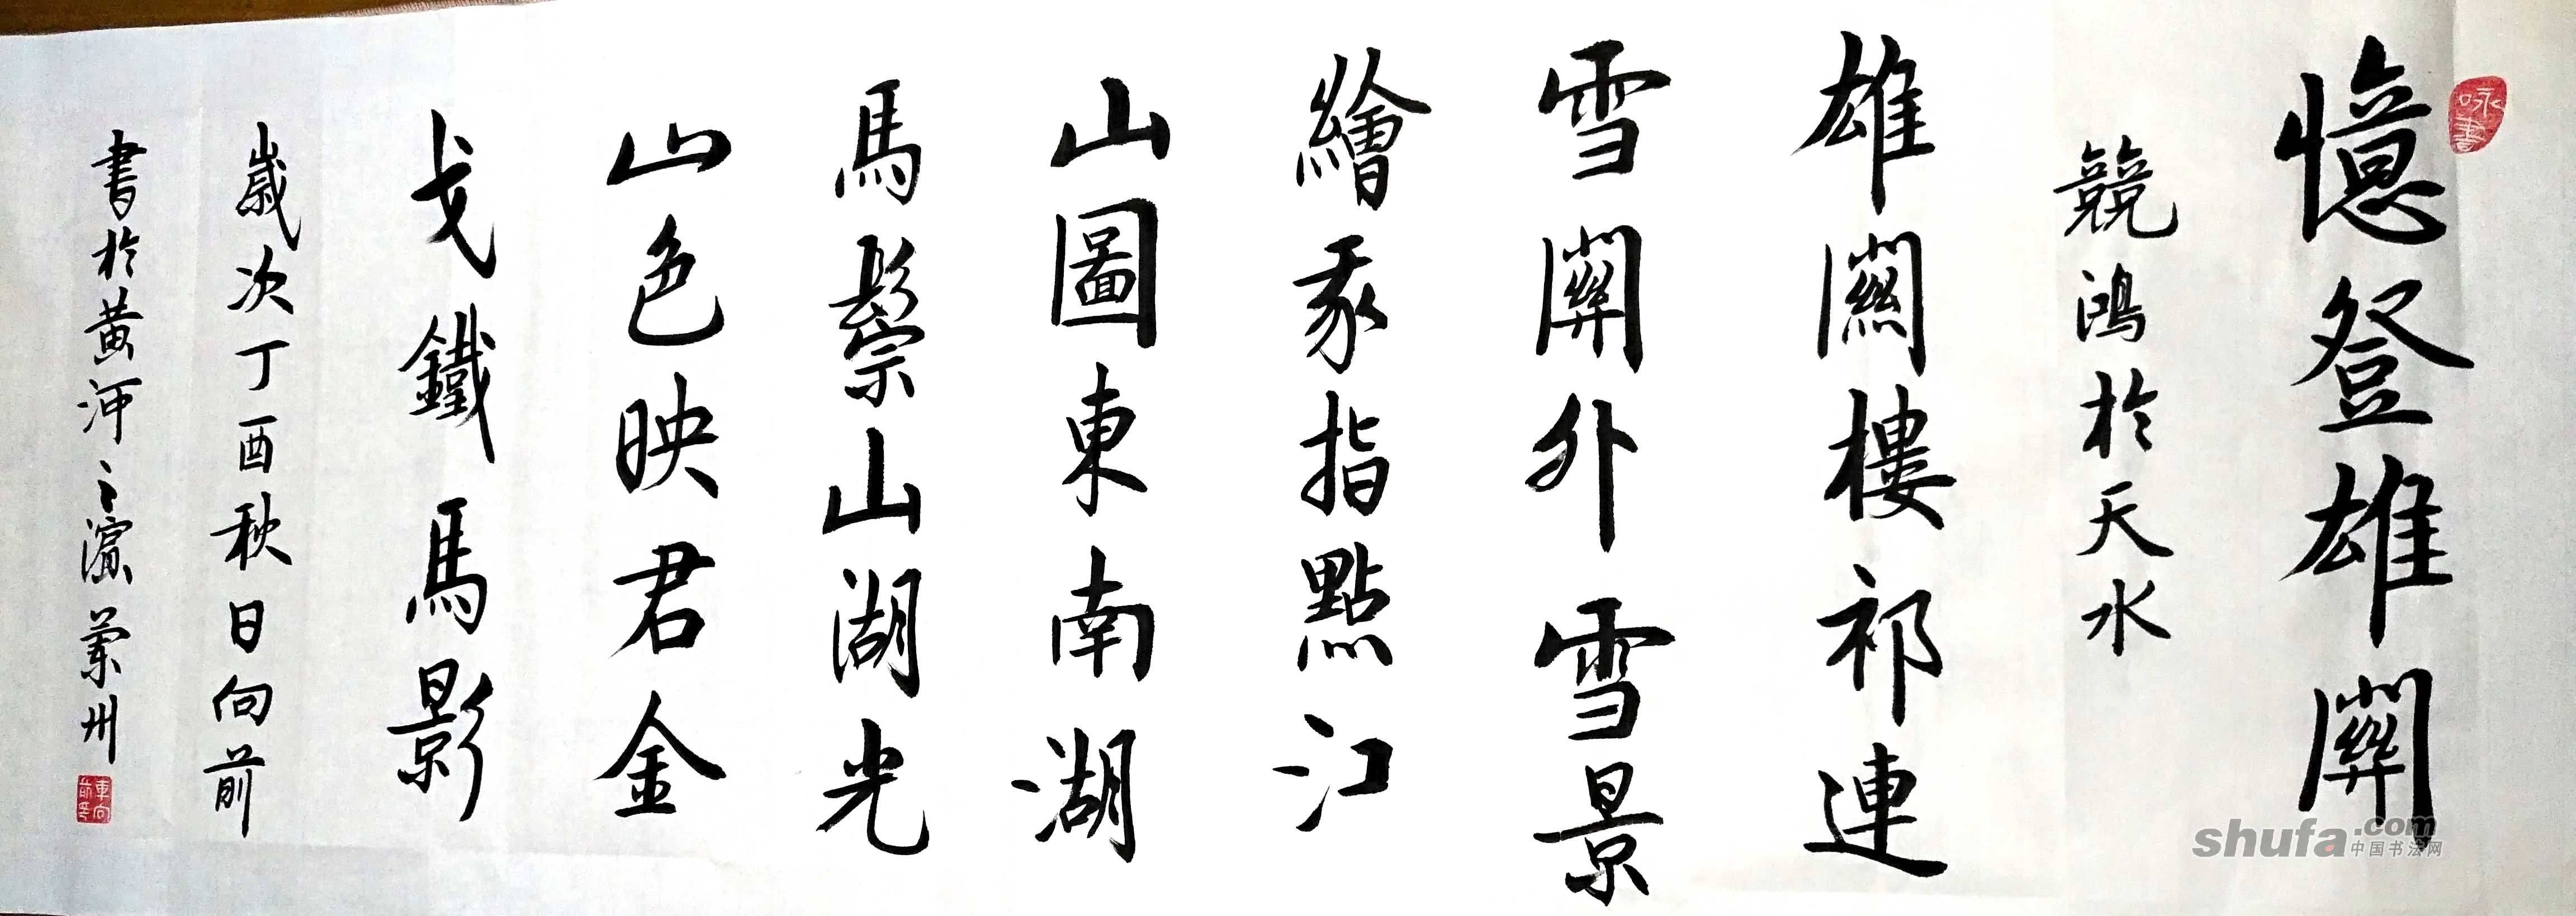 憶登雄關
競鴻於天水
雄關樓祁連
雪關外雪景
繪豕指點江
山圖東南湖
馬鬃山湖光
山色映君金
戈鐵馬影
歲次丁酉秋日向前
書於黃河之濱蘭州
咏書
車向前印
shufa.com
中国书法网